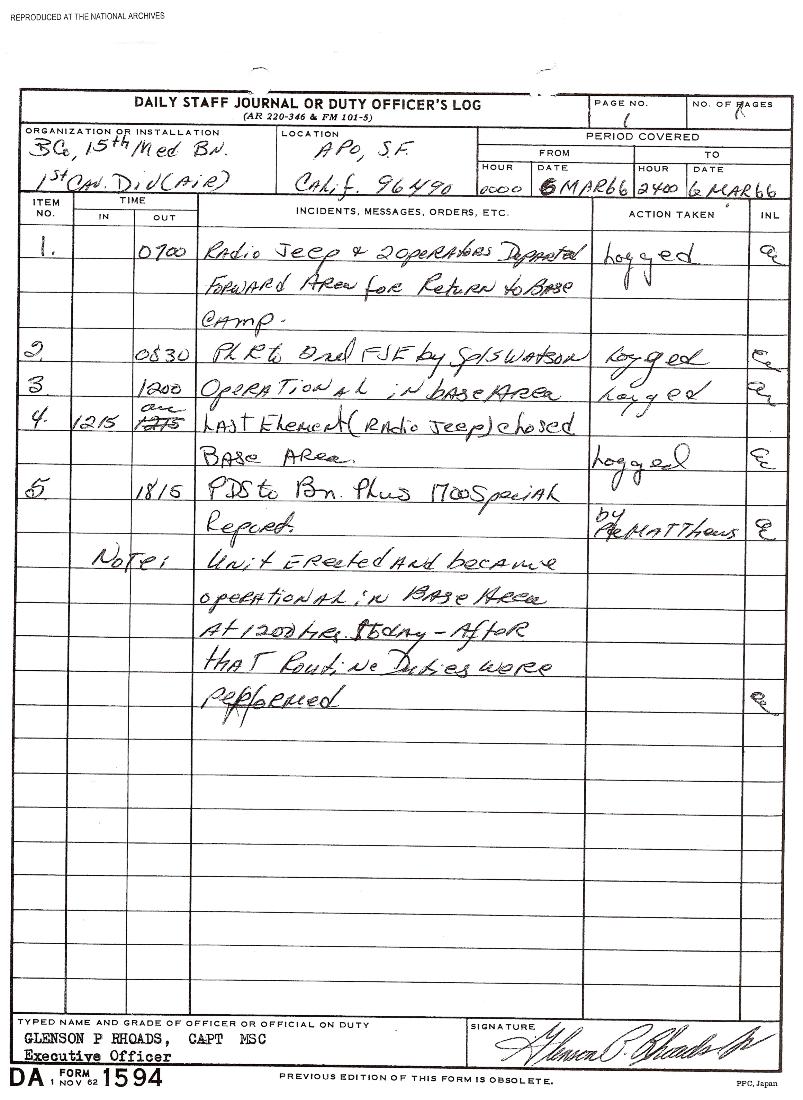 REPRODUCED AT THE NATIONAL ARCHIVES
DAILY STAFF JOURNAL OR DUTY OFFICER'S LOG
(AR 220-346 & FM 101-5)
PAGE NO.
1
NO. OF PAGES
1
ORGANIZATION OR INSTALLATION
B Co, 15th Med Bn.
1st Cav. Div (Air)
LOCATION
APO, S.F.
Calif. 96490
PERIOD COVERED
FROM
TO
HOUR
DATE
HOUR
DATE
0000
6 MAR 66
2400
6 MAR 66
ITEM NO.
TIME
IN
OUT
INCIDENTS, MESSAGES, ORDERS, ETC.
ACTION TAKEN
INL
1.
0700
Radio Jeep & 2 Operators Departed
Logged
Forward Area for Return to Base
Camp.
2
0830
to 2nd FSE by Sp/5 Watson
Logged
3
1200
Operational in base Area
Logged
4.
1215
1215
Last Element (Radio Jeep) closed
Base Area.
Logged
5
1815
PDS to Bn. Plus 1700 Special
Report.
by
Matthews
Note:
Unit Erected and became
operational in Base Area
At 1200 hrs. today - After
that Routine Duties were
performed
TYPED NAME AND GRADE OF OFFICER OR OFFICIAL ON DUTY
GLENSON P RHOADS, CAPT MSC
Executive Officer
SIGNATURE
Glenson P. Rhoads Jr
DA FORM 1 NOV 62 1594
PREVIOUS EDITION OF THIS FORM IS OBSOLETE.
PPC, Japan